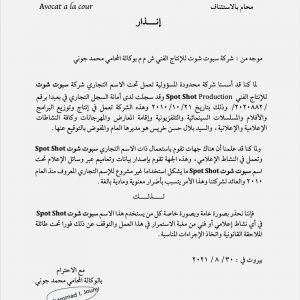 Avocat a la cour
محام بالاستئناف
إنــذار
موجه من : شركة سبوت شوت للإنتاج الفني ش م م بوكالة المحامي محمد جوني
لما كنا قد أسسنا شركة محدودة المسؤولية تعمل تحت الاسم التجاري شركة سبوت شوت
للإنتاج الفني Spot Shot Production وقد سجلت لدى أمانة السجل التجاري في بعبدا برقم
/٢٠٢٠٨٨٢/ وذلك بتاريخ ٢٠١٠/١٠/٢١ وهذه الشركة تعمل في إنتاج وتوزيع البرامج
والأفلام والمسلسلات السينمائية والتلفزيونية وإقامة المعارض والمهرجانات وكافة النشاطات
الإعلامية والإعلانية ، والسيد بلال حسن خريس هو مديرها العام والمفوض بالتوقيع عنها.
ولما كنا قد علمنا أن هناك جهات تقوم باستعمال ذات الاسم التجاري سبوت شوت Spot Shot
وتعمل في النشاط الإعلامي ، وهذه الجهة تقوم بإصدار بيانات وتعاميم عبر وسائل الإعلام تحت
اسم سبوت شوت Spot Shot ما يشكل استخداما غير مشروع للإسم التجاري المعروف منذ العام
٢٠١٠ والعائد لشركتنا وهذا الأمر يتسبب بأضرار معنوية ومادية بالغة.
لـــذلـــك
فإننا نحذر بصورة عامة وبصورة خاصة كل من يستخدم هذا الاسم سبوت شوت Spot Shot
في أي نشاط إعلامي أو فني من مغبة الاستمرار في هذا العمل والتوقف عن ذلك فورا تحت طائلة
الملاحقة القانونية واتخاذ الإجراءات المناسبة.
بيروت في : ٣٠ / ٨ / ٢٠٢١
مع الاحترام
بالوكالة المحامي محمد جوني